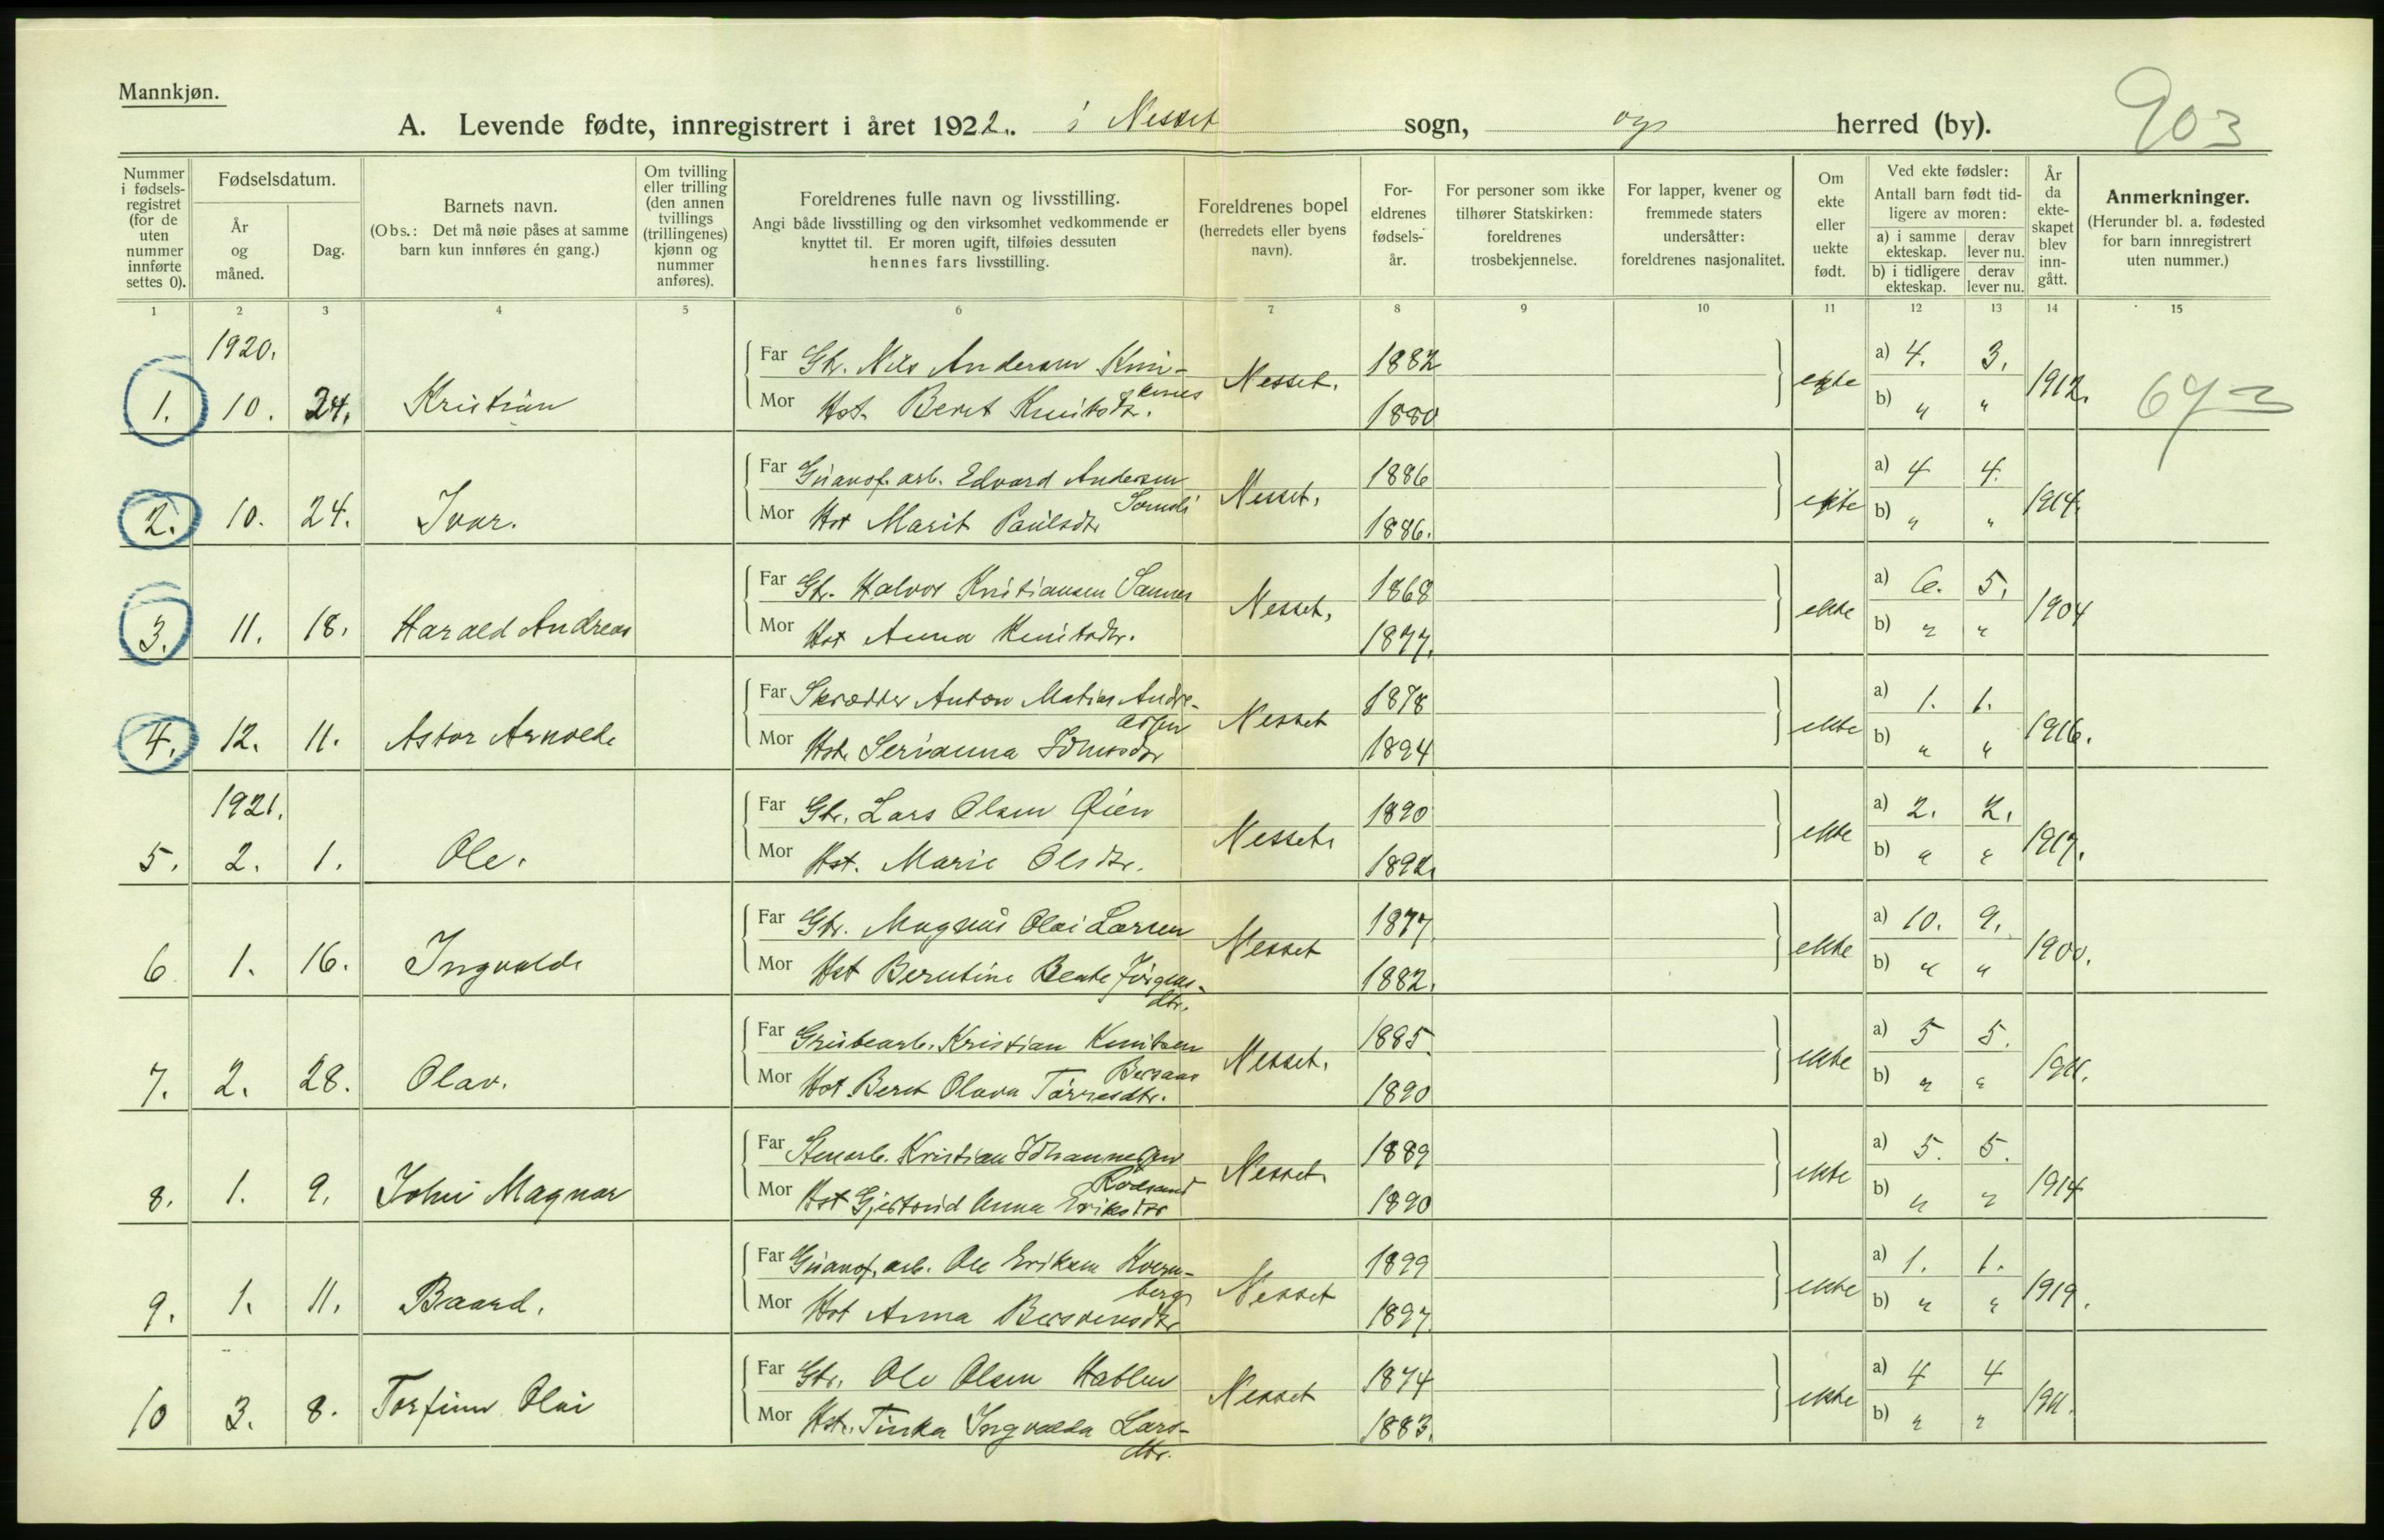 Mannkjøn.
903
A. Levende fødte, innregistrert i året 1922. i Nesset sogn, og herred (by).
Nummer i fødsels-registret (for de uten nummer innførte settes 0).
Fødselsdatum.
År og måned.
Dag.
Barnets navn.
(Obs.: Det må nøie påses at samme barn kun innføres én gang.)
Om tvilling eller trilling (den annen tvillings (trillingenes) kjønn og nummer anføres).
Foreldrenes fulle navn og livsstilling.
Angi både livsstilling og den virksomhet vedkommende er knyttet til. Er moren ugift, tilføies dessuten hennes fars livsstilling.
Foreldrenes bopel (herredets eller byens navn).
For-eldrenes fødsels-år.
For personer som ikke tilhører Statskirken: foreldrenes trosbekjennelse.
For lapper, kvener og fremmede staters undersåtter: foreldrenes nasjonalitet.
Om ekte eller uekte født.
Ved ekte fødsler: Antall barn født tid-ligere av moren:
a) i samme ekteskap. derav lever nu.
b) i tidligere ekteskap. derav lever nu.
År da ekte-skapet blev inn-gått.
Anmerkninger.
(Herunder bl. a. fødested for barn innregistrert uten nummer.)
1 2 3 4 5 6 7 8 9 10 11 12 13 14 15
1920.
1. 10. 24. Kristian Far Gbr. Nils Andersen Nesset. 1882 ekte a) 4. 3. 1912. 673
Mor Hst. Beret Knutsdtr. 1880 b) " "
2. 10. 24. Ivar. Far Guanof. arb. Edvard Andersen Nesset. 1886 ekte a) 4 4. 1914.
Mor Hst Marit Paulsdtr 1886. b) " "
3. 11. 18. Harald Andreas Far Gbr. Halvor Kristiansen Sannes Nesset. 1868 ekte a) 6. 5. 1904
Mor Hst Anna Knutsdtr. 1877. b) " "
4. 12. 11. Astor Arnolde Far Skrædder Anton Matias Andre-assen Nesset 1878 ekte a) 1. 1. 1916.
Mor Hst. Serianna 1894 b) " "
1921.
5. 2. 1. Ole. Far Gbr. Lars Olsen Øien Nesset. 1890 ekte a) 2. 2. 1917.
Mor Hst. Marie Olsdtr. 1892. b) " "
6 1. 16. Ingvalde Far Gbr. Magnus Olai Larsen Nesset 1877. ekte a) 10. 9. 1900.
Mor Hst Berntine Beate Jörgens-dtr. 1882. b) " "
7. 2. 28. Olav. Far Grubearb. Kristian Knutsen Nesset. 1885. ekte a) 5 5. 1911.
Mor Hst Beret Olava Torresdtr. 1890 b) " "
8. 1. 9. John Magnar Far Stenarb. Kristian Johannessen Rödsand Nesset. 1889 ekte a) 5. 5. 1914
Mor Hst Gjertrud Anna Eriksdtr 1890 b) " "
9. 1. 11. Baard. Far Guanof. arb. Ole Eriksen Kvern-berg Nesset 1899 ekte a) 1. 1. 1919.
Mor Hst Anna Bersvensdtr 1897. b) " "
10 3. 8. Torfinn Olai Far Gbr. Ole Olsen Nesset 1874 ekte a) 4 4 1911.
Mor Hst. Tinka Ingvalda Lars-dtr. 1883. b) " "